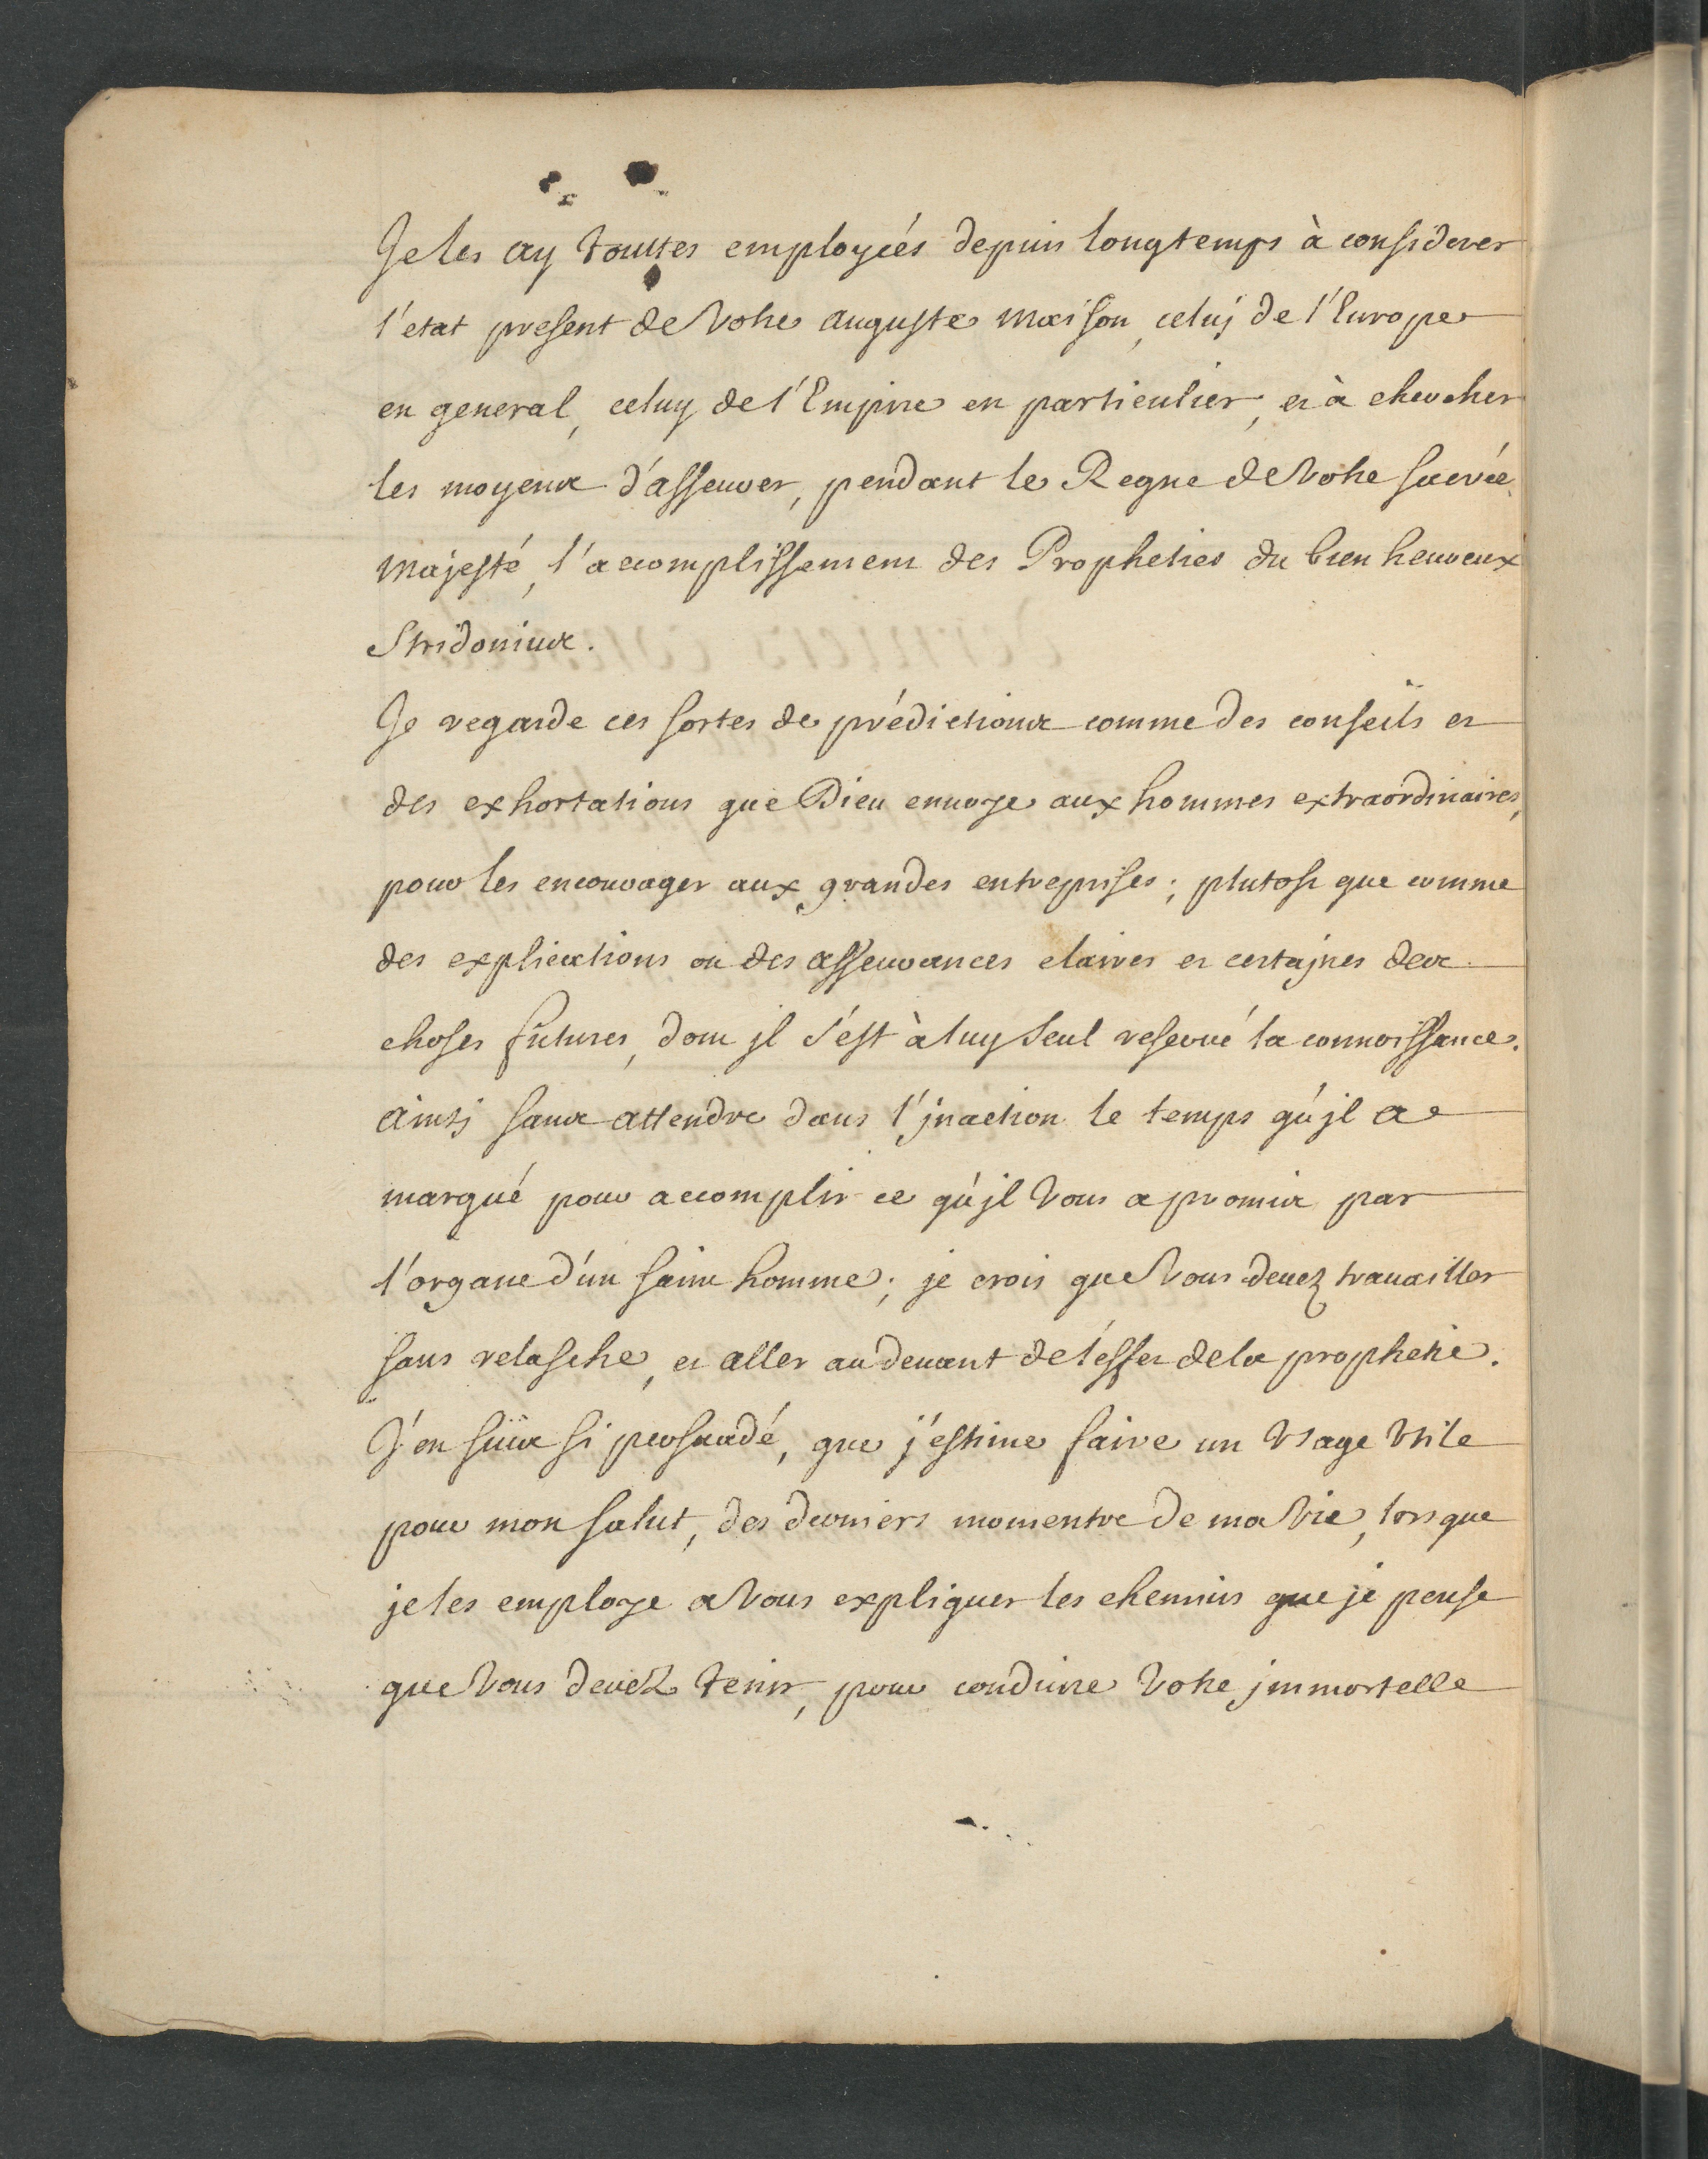 Je les ay touttes employées depuis longtemps à considerer
l'etat present de Votre auguste Maison, celuj de l'Europe
en general, celuy de l'Empire en particulier, et à chercher
les moyens d'asseurer, pendant le Regne de Votre sacrée
Majesté, l'accomplissement des Propheties du bien heureux
Stridonius.
Je regarde ces sortes de prédictions comme des conseils et
des exhortations que Dieu envoye aux hommes extraordinaires,
pour les encourager aux grandes entreprises; plutost que comme
des explications ou des asseurances claires et certajnes des
choses futures, dont jl s'est à luy seul reservé la connoissance.
Ainsj sans attendre dans l'jnaction le temps qu'jl a
marqué pour accomplir ce qu'jl Vous a promis par
l'organe d'un saint homme; je crois que Vous devez travailler
sans relasche, et aller au devant de l'effet de la prophetie.
J'en suis si persuadé, que j'estime faire un Vsage Vtile
pour mon salut, des derniers moments de ma Vie, lorsque
je les employe a Vous expliquer les chemins que je pense
que Vous devez tenir, pour conduire Votre jmmortelle